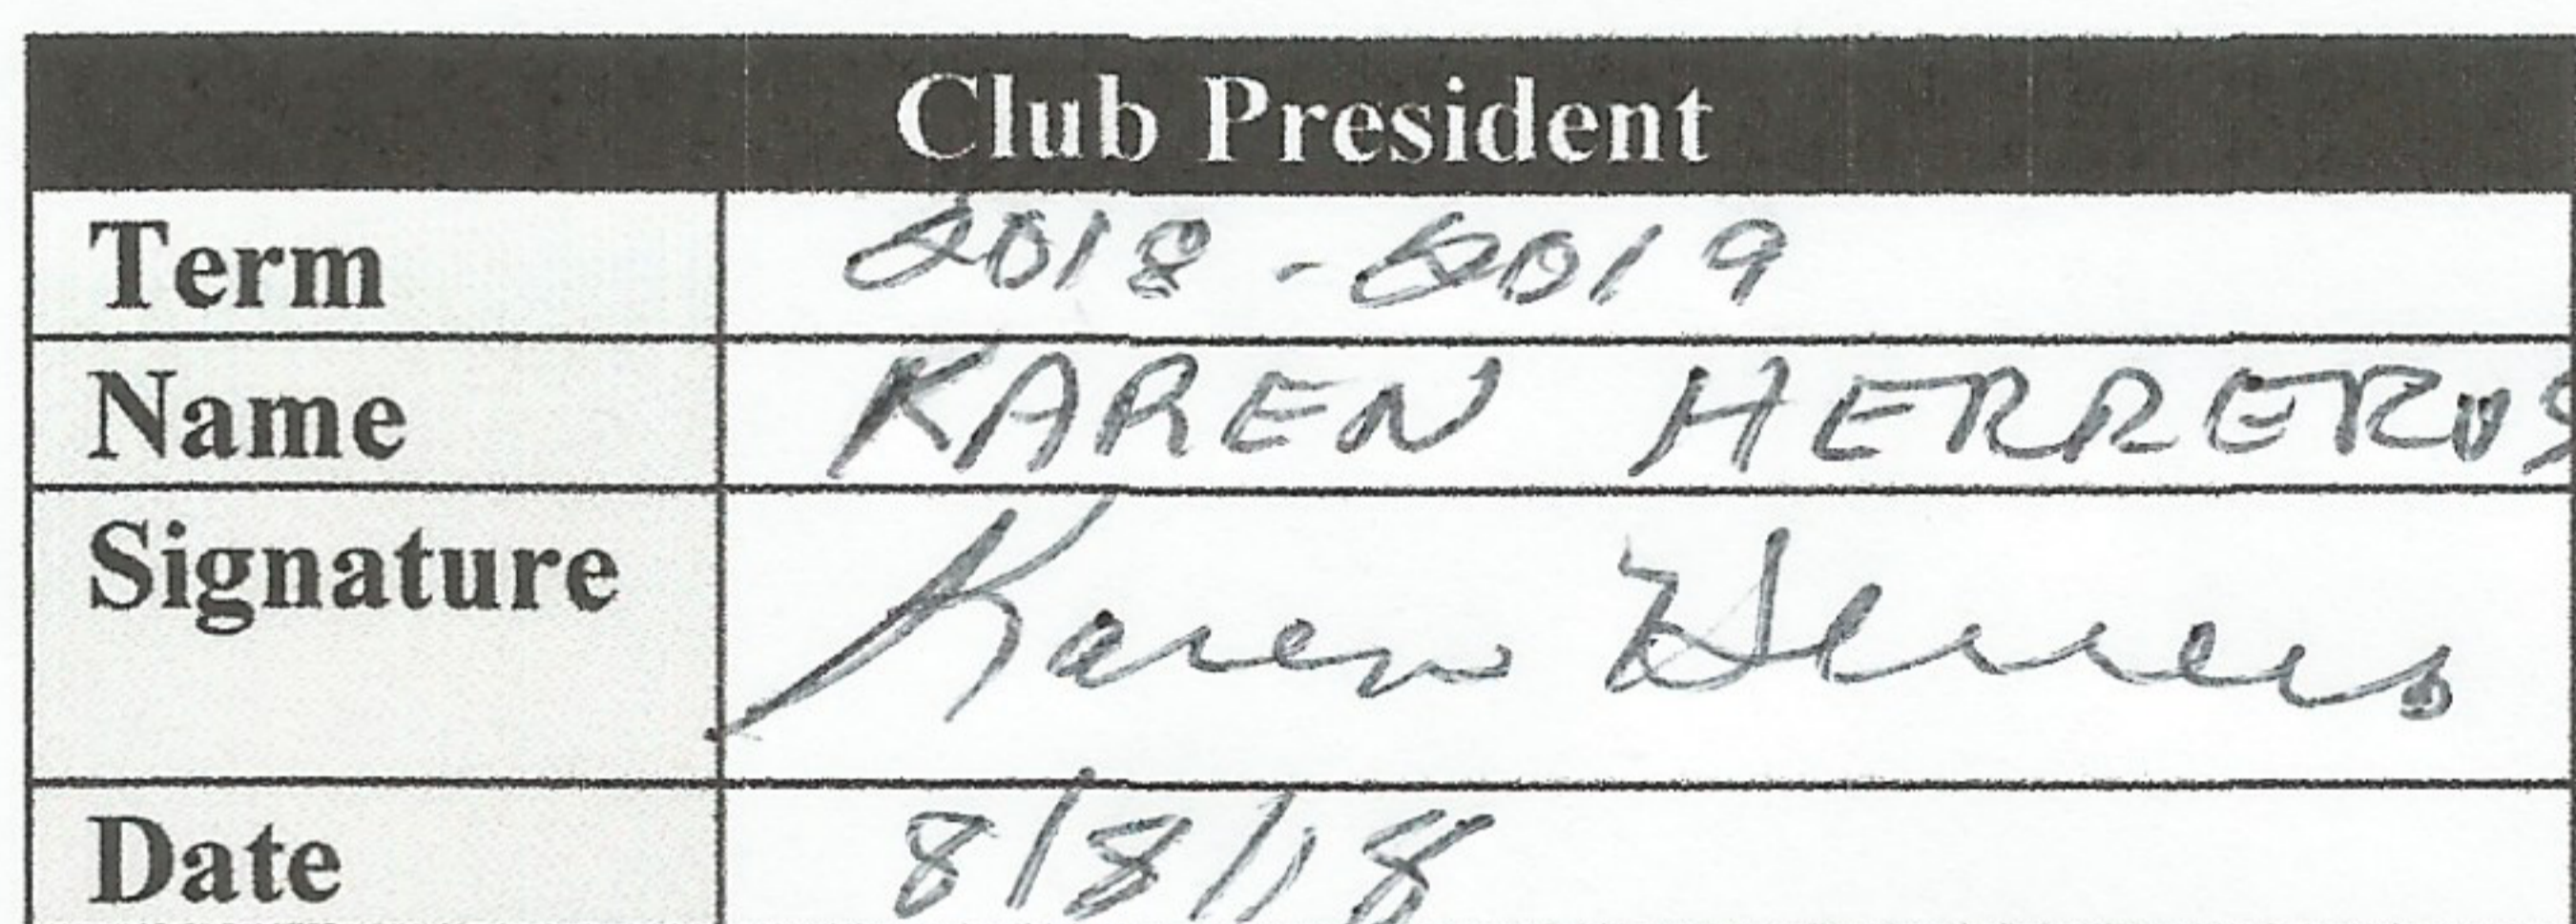 Club President
Term 2018 - 2019
Name KAREN HERREROS
Signature Karen Herreros
Date 8/8/18